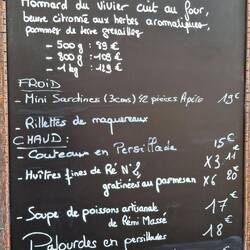 Homard du Vivier cuit au four,
beurre citronné aux herbes aromatiques,
pommes de terre grenailles
- 500 g : 89 €
- 800 g : 109 €
- 1 kg : 129 €
FROID
- Mini Sardines (3cms) 12 pièces Apéro 19€
- Rillettes de maquereaux
CHAUD: 15€
- Couteaux en Persillade
- Huîtres fines de Ré N°2 X3 11
gratinées au parmesan X6 20€
- Soupe de poissons artisanale 17€
de Rémi Massé
- Palourdes en persillades 18